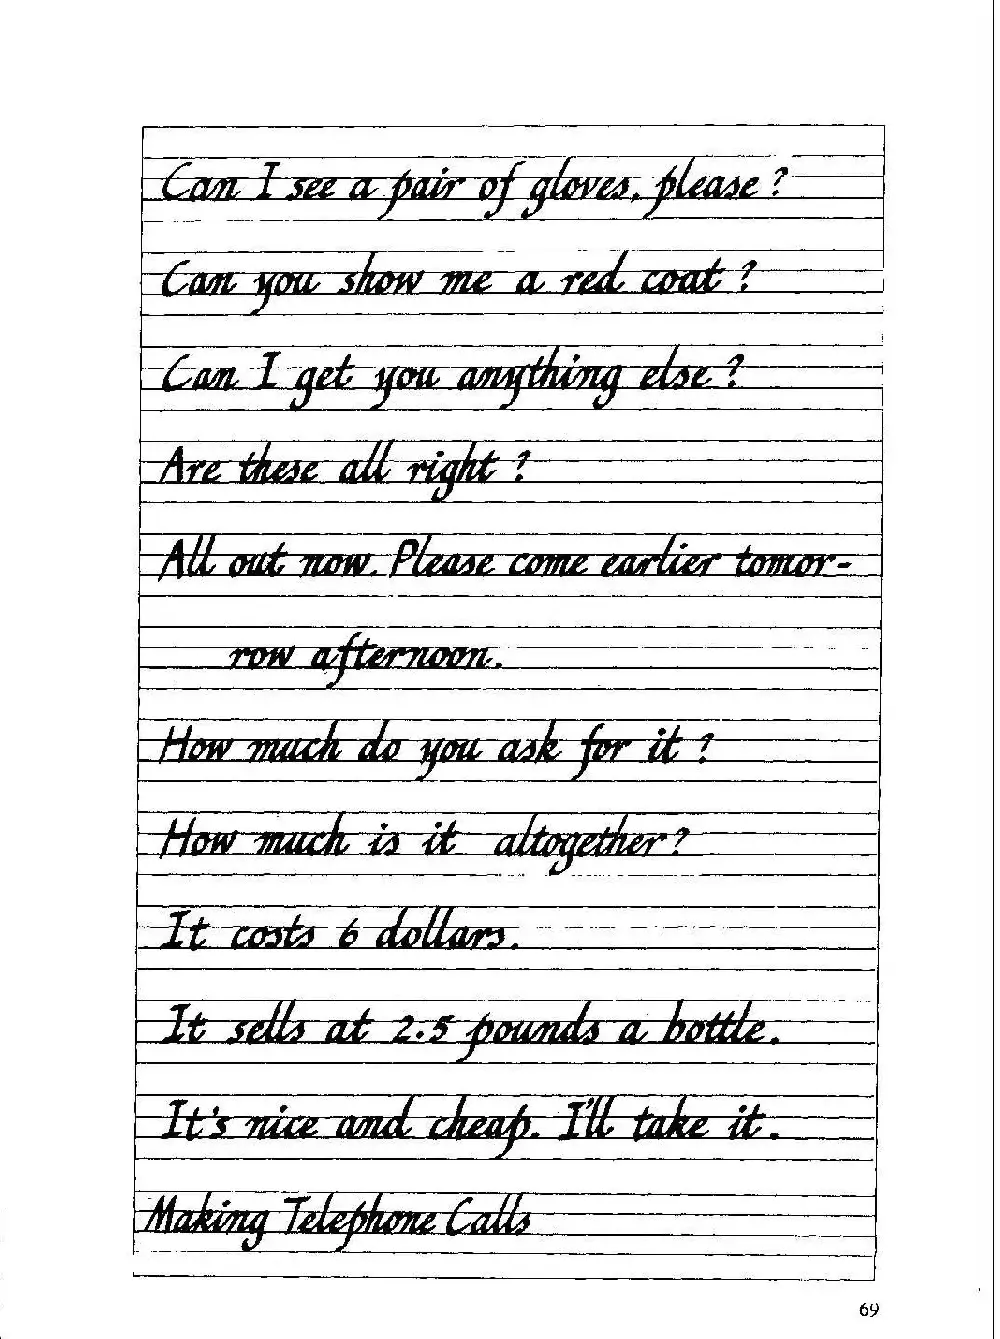 Can I see a pair of gloves, please?
Can you show me a red coat?
Can I get you anything else?
Are these all right?
All out now. Please come earlier tomor-
row afternoon.
How much do you ask for it?
How much is it altogether?
It costs 6 dollars.
It sells at 2.5 pounds a bottle.
It's nice and cheap. I'll take it.
Making Telephone Calls
69